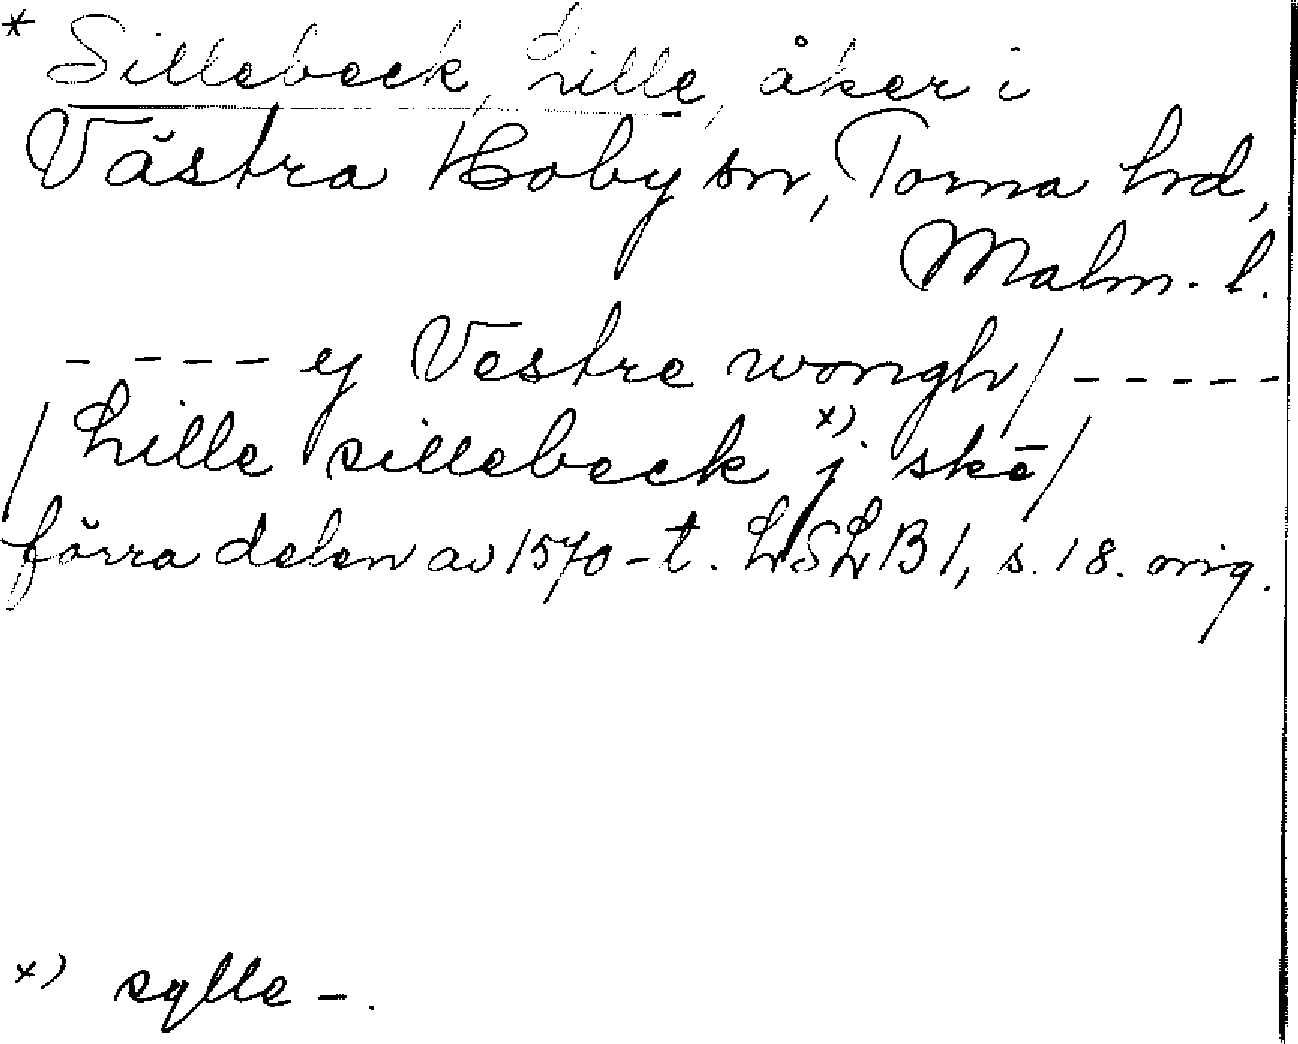 * Sillebeck, Lille, åker i
Västra Hoby sn, Torna hd,
Malm. l.
- - - - ej Vestre wongh / - - - - -
/ Lille sillebeck x) j skē /
förra delen av 1570-t. LSLB 1, s. 18. orig.
x) sylle - .